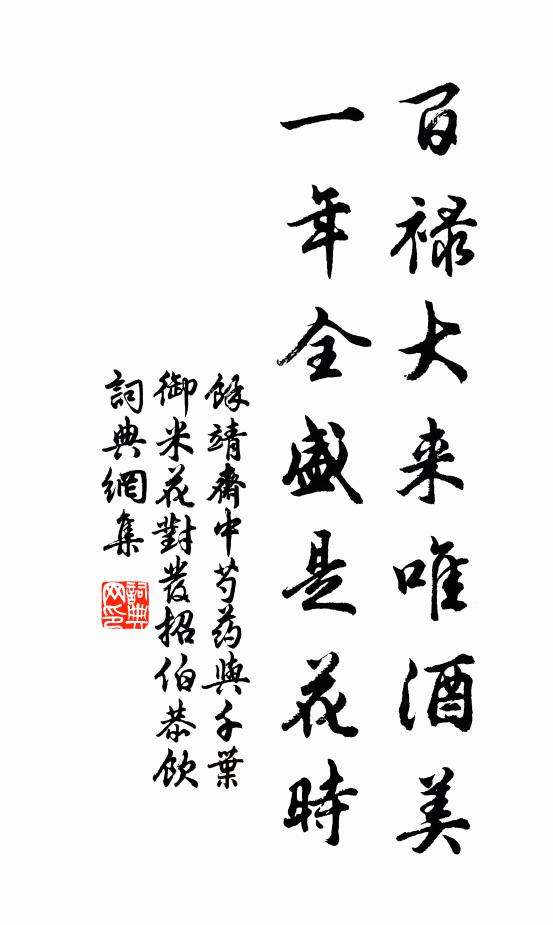 百禄大来唯酒美
一年全盛是花時
餘靖齋中芍药與千葉
御米花對發招伯恭飲
詞典網集
詞典
网印